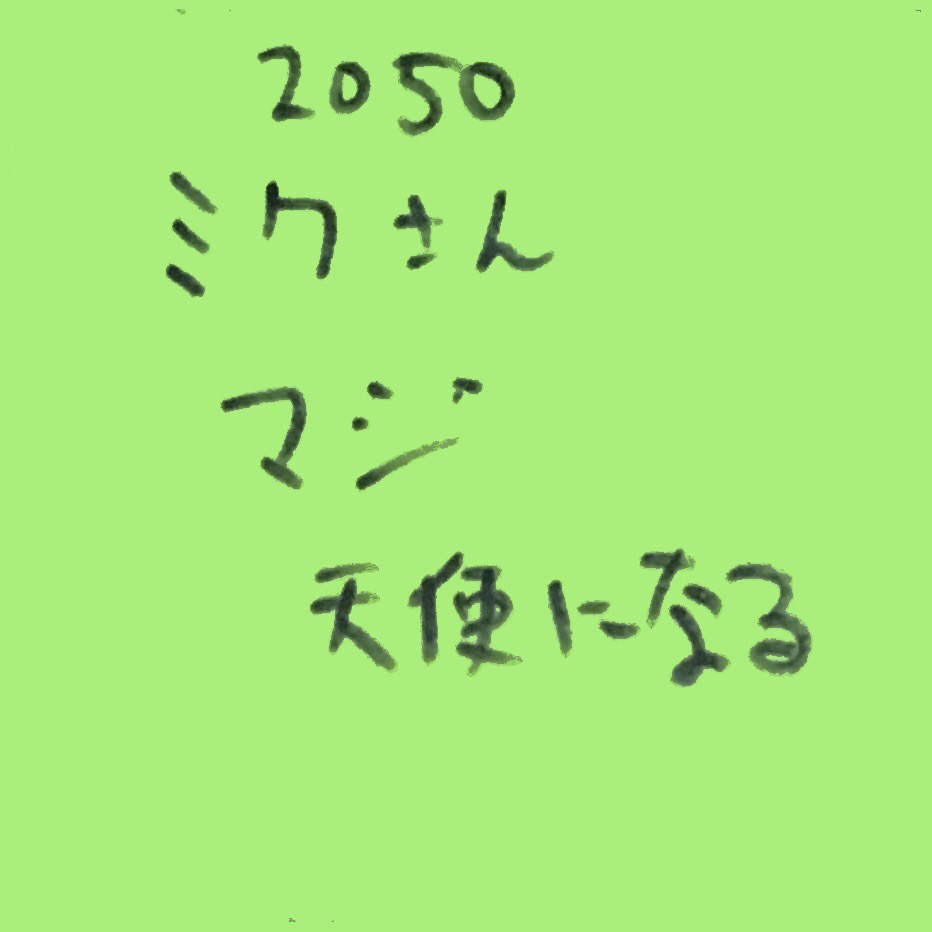 2050
ミクさん
マジ
天使になる